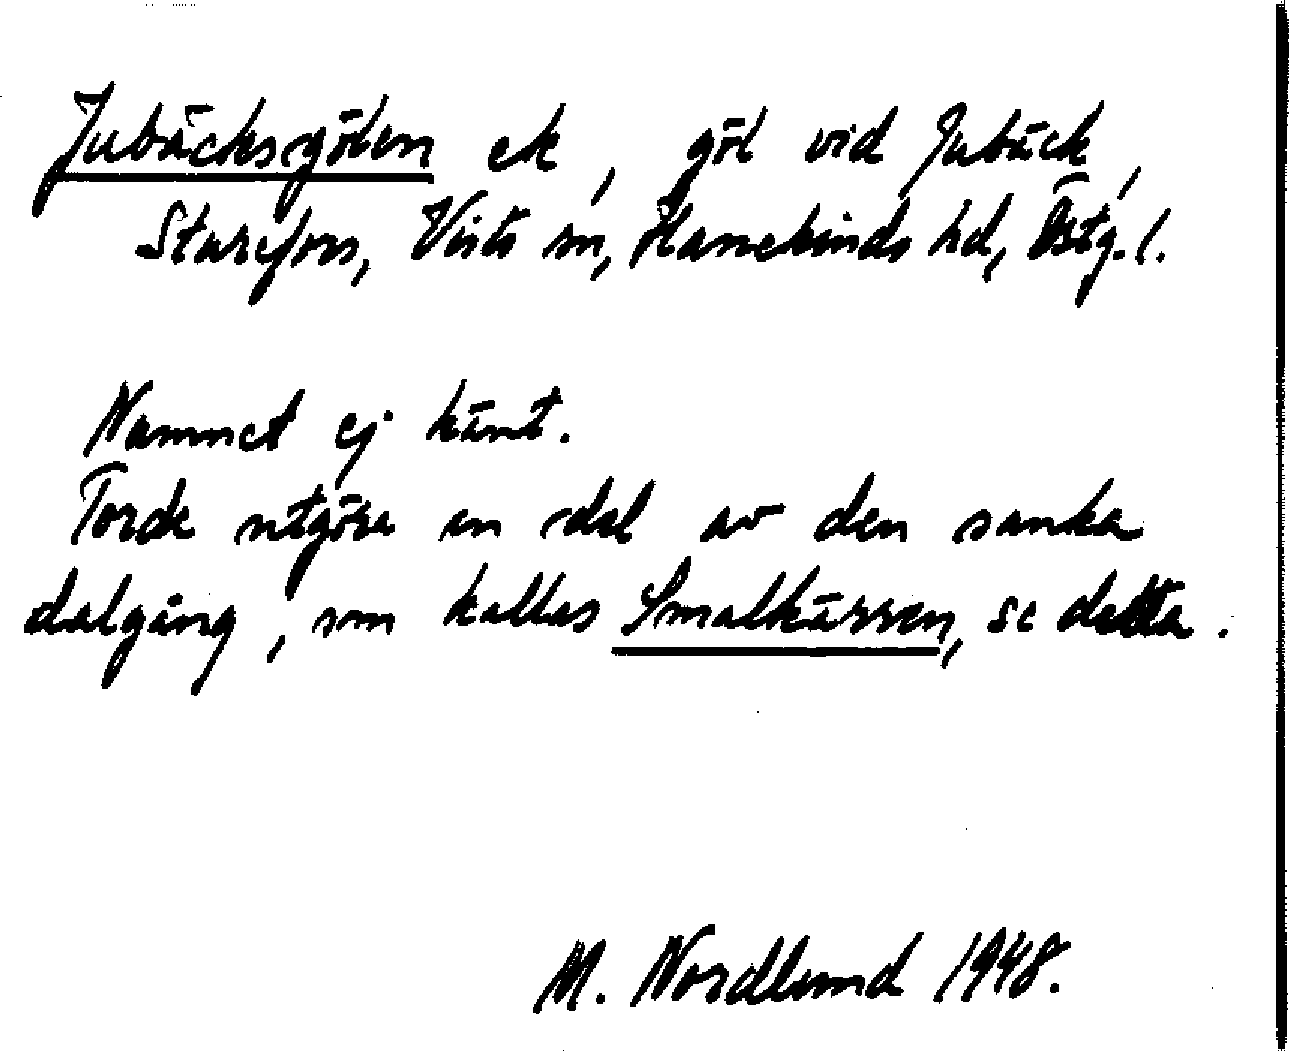 Jubäcksgölen ek, göl vid Jubäck,
Sturefors, Vists sn, Hanekinds hd, Östg. l.
Namnet ej känt.
Torde utgöra en del av den sanka
dalgång, som kallas Smalkärren, se detta.
M. Nordlund 1948.